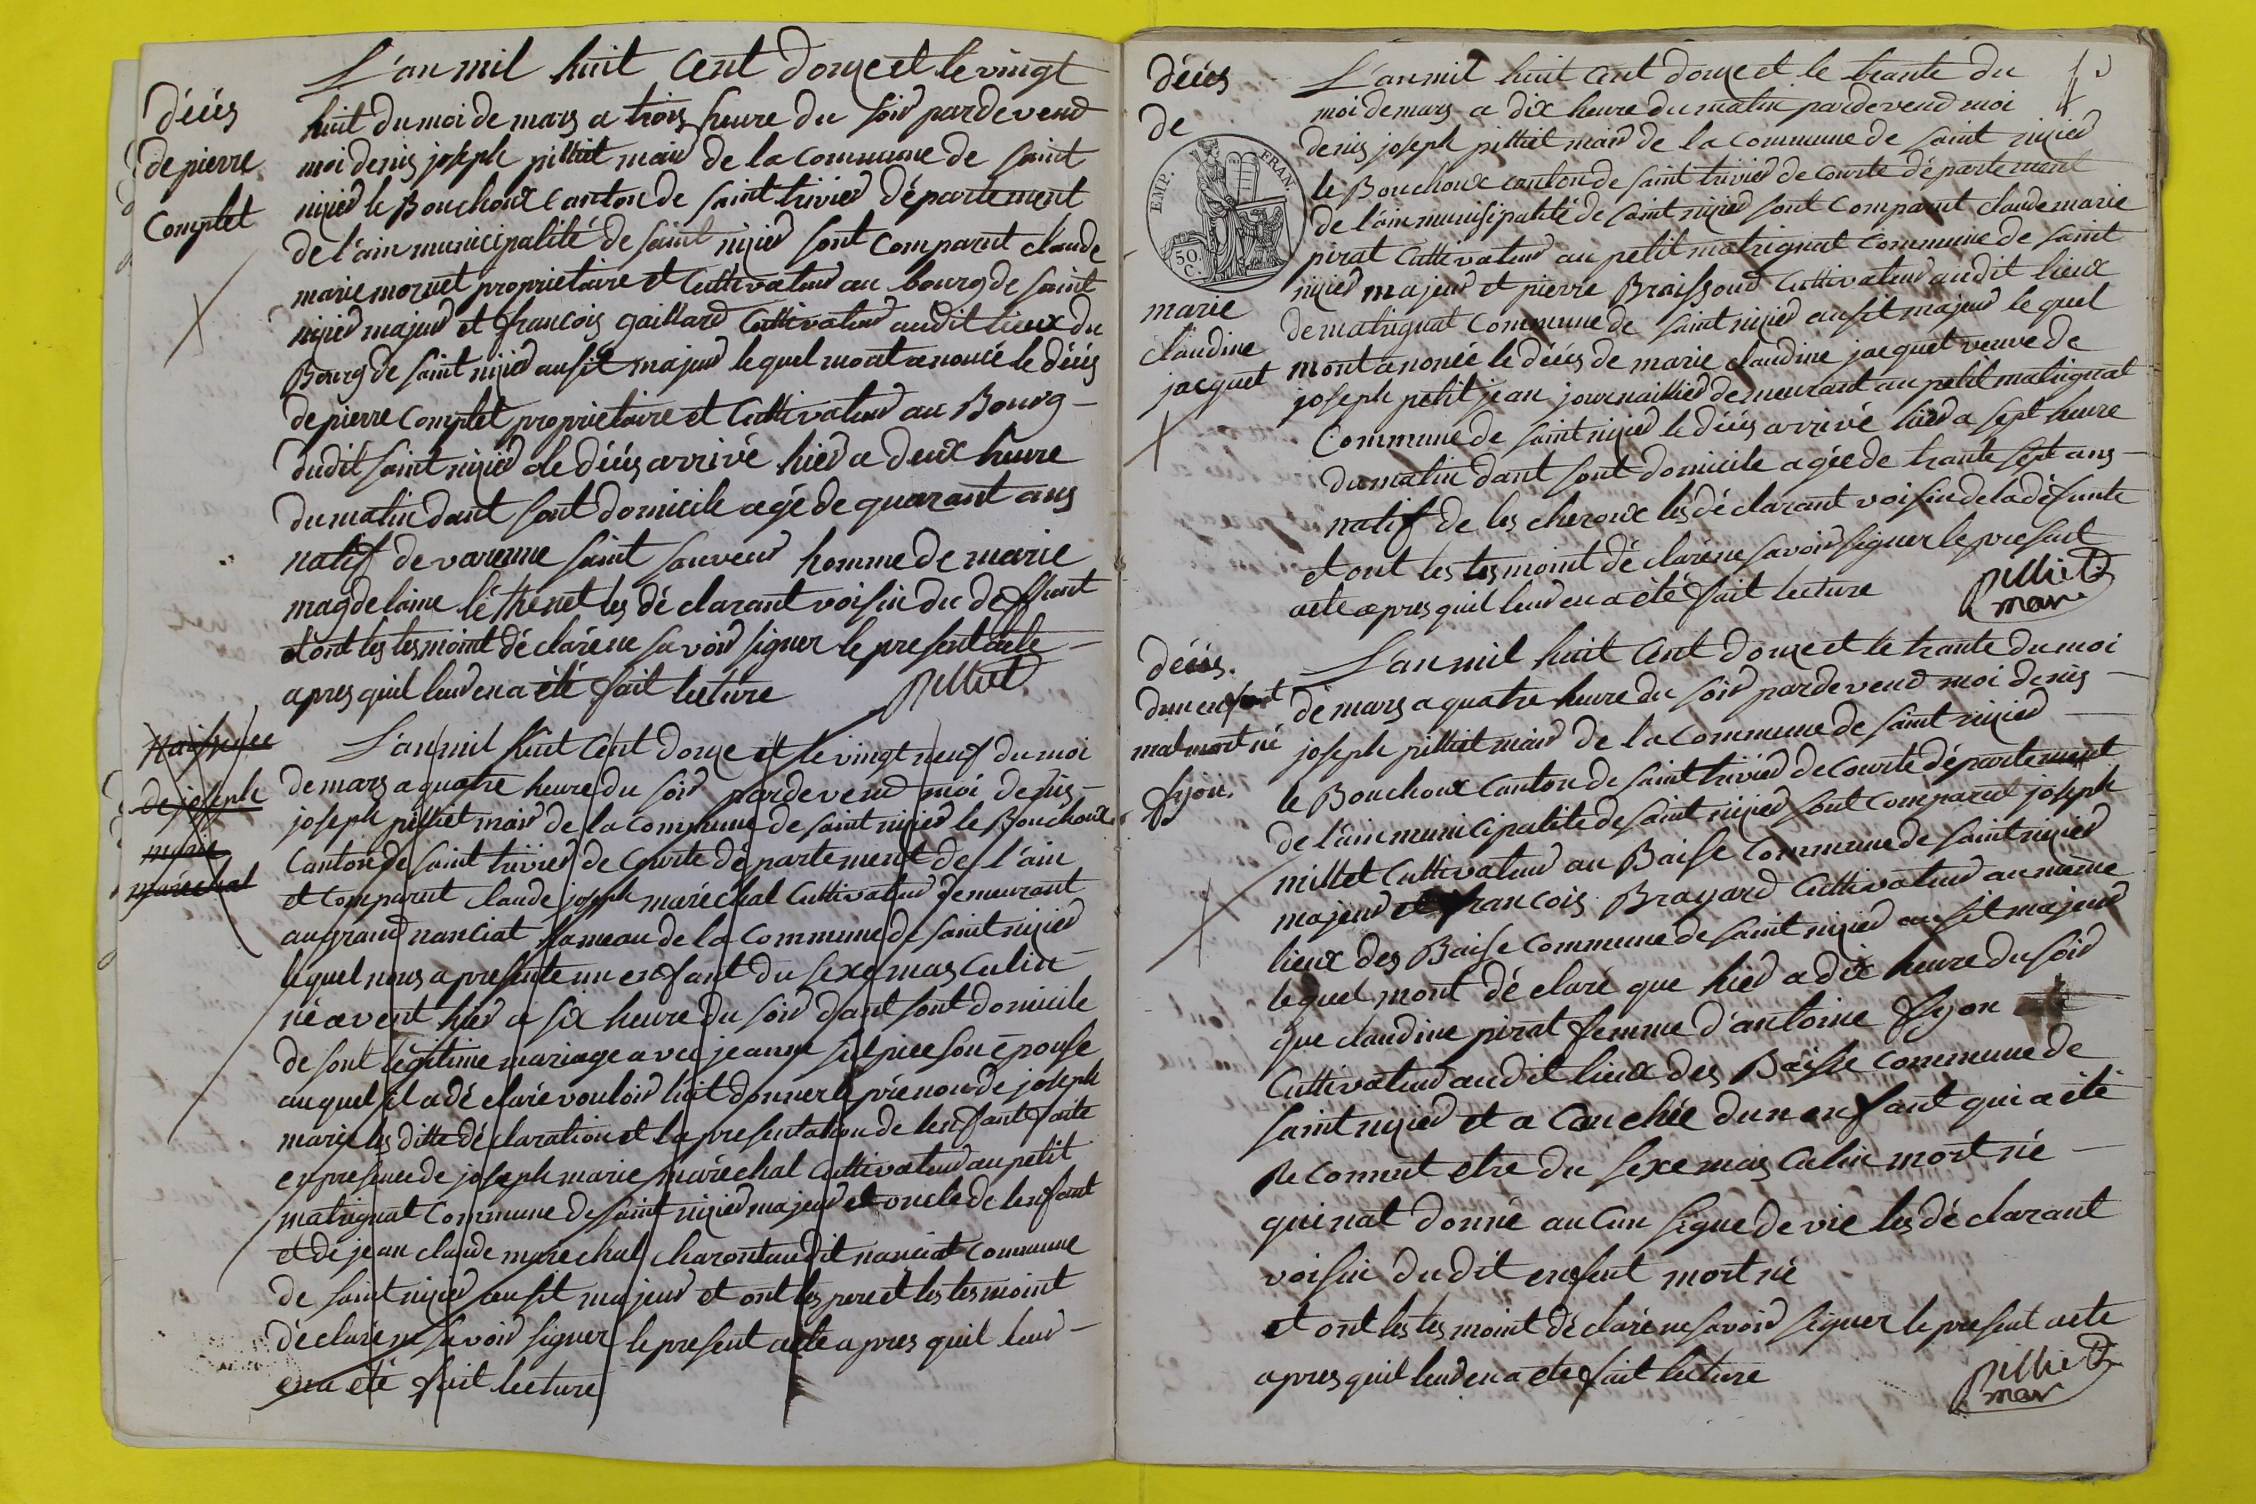 décés
de pierre
Complet
L'an mil huit Cent douze et le vingt
huit du moi de mars a trois heure du soir pardevend
moi denis joseph pilliet mair de la Commune de saint
nizier le Bouchoux Canton de saint trivier département
de l'ain municipalité de saint nizier sont Comparut claude
marie moruet proprietaire et Cultivateur au bourg de saint
nizier majeur et francois gaillard Cultivateur audit lieux du
Bourg de saint nizier ausit majeur lequel mont anoncé le décés
de pierre Complet proprietaire et Cultivateur au Bourg
dudit saint nizier le décés arrivé hier a deux heure
du matin dant sont domicile agé de quarant ans
natif de varenne saint sauveur homme de marie
magdelaine léthenet les déclarant voisin du deffunt
et ont les tesmoint déclaré ne savoir signer le present acte
apres quil leur en a été fait lecture pilliet
Naissance
de joseph
marie
maréchal
L'an mil huit Cent douze et le vingt neuf du moi
de mars a quatre heure du soir pardevend moi denis
joseph pilliet mair de la Commune de saint nizier le Bouchoux
Canton de saint trivier de Courte département de l'ain
et Comparut claude joseph maréchal Cultivateur demeurant
au grand nanciat hameau de la Commune de saint nizier
lequel nous a presente un enfant du sexe masculin
né avent hier a six heure du soir dant sont domicile
de sont légitime mariage avec jeanne sulpice son épouse
auquel il a déclaré vouloir luit donner le prénon de joseph
marie les ditte déclaration et la presentation de lenfant faite
en presence de joseph marie maréchal Cultivateur au petit
matrignat Commune de saint nizier majeur et oncle de lenfant
et de jean claude marechal charont audit nanciat Commune
de saint nizier ausit majeur et ont les pere et les tesmoint
déclaré ne savoir signer le present acte apres quil leur
en a été fait lecture
décés
de
EMP. FRAN.
50. C.
marie
claudine
jacquet
L'an mil huit Cent douze et le trante du
moi de mars a dix heure du matin pardevend moi
denis joseph pilliet mair de la Commune de saint nizier
le Bouchoux canton de saint trivier de Courte département
de l'ain munisipalité de saint nizier sont Comparut claude marie
pirat Cultivateur au petit matrignat Commune de saint
nizier majeur et pierre Braissoud Cultivateur audit lieux
de matrignat Commune de saint nizier ausit majeur lequel
mont anoncé le décés de marie claudine jacquet veuve de
joseph petit jean journaillier demeurant au petit matrignat
Commune de saint nizier le décés arrivé hier a sept heure
du matin dant sont domicile agée de trante sept ans
natif de les cheroux les déclarant voisin de la défunte
et ont les tesmoint déclaré ne savoir signer le present
acte apres quil leur en a été fait lecture
pilliet
mair
décés.
dun enfant
mal mort né
fyon.
L'an mil huit Cent douze et le trante du moi
de mars a quatre heure du soir pardevend moi denis
joseph pilliet mair de la Commune de saint nizier
le Bouchoux Canton de saint trivier de Courte département
de l'ain municipalité de saint nizier sont Comparut joseph
millet Cultivateur au Baise Commune de saint nizier
majeur et francois Brayard Cultivateur au même
lieux des Baise Commune de saint nizier ausit majeur
lequel mont déclaré que hier a dix heure du soir
que claudine pirat femme d'antoine fyon
Cultivateur audit lieux des Baisse Commune de
saint nizier et a Couchée dun enfant qui a été
reconnut etre du sexe masculin mort né
qui nat donné aucun signe de vie les déclarant
voisin dudit enfent mort né
et ont les tesmoint déclaré ne savoir signer le present acte
apres quil leur en a ete fait lecture
pilliet
mair